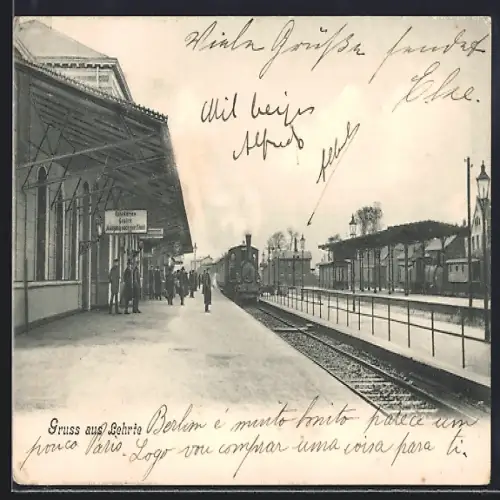 Viele Grüße sendet
Else.
Mil beijos
Alfredo
Gruss aus Lehrte
Berlim é muito bonito parece um
pouco Paris. Logo vou comprar uma coisa para ti.